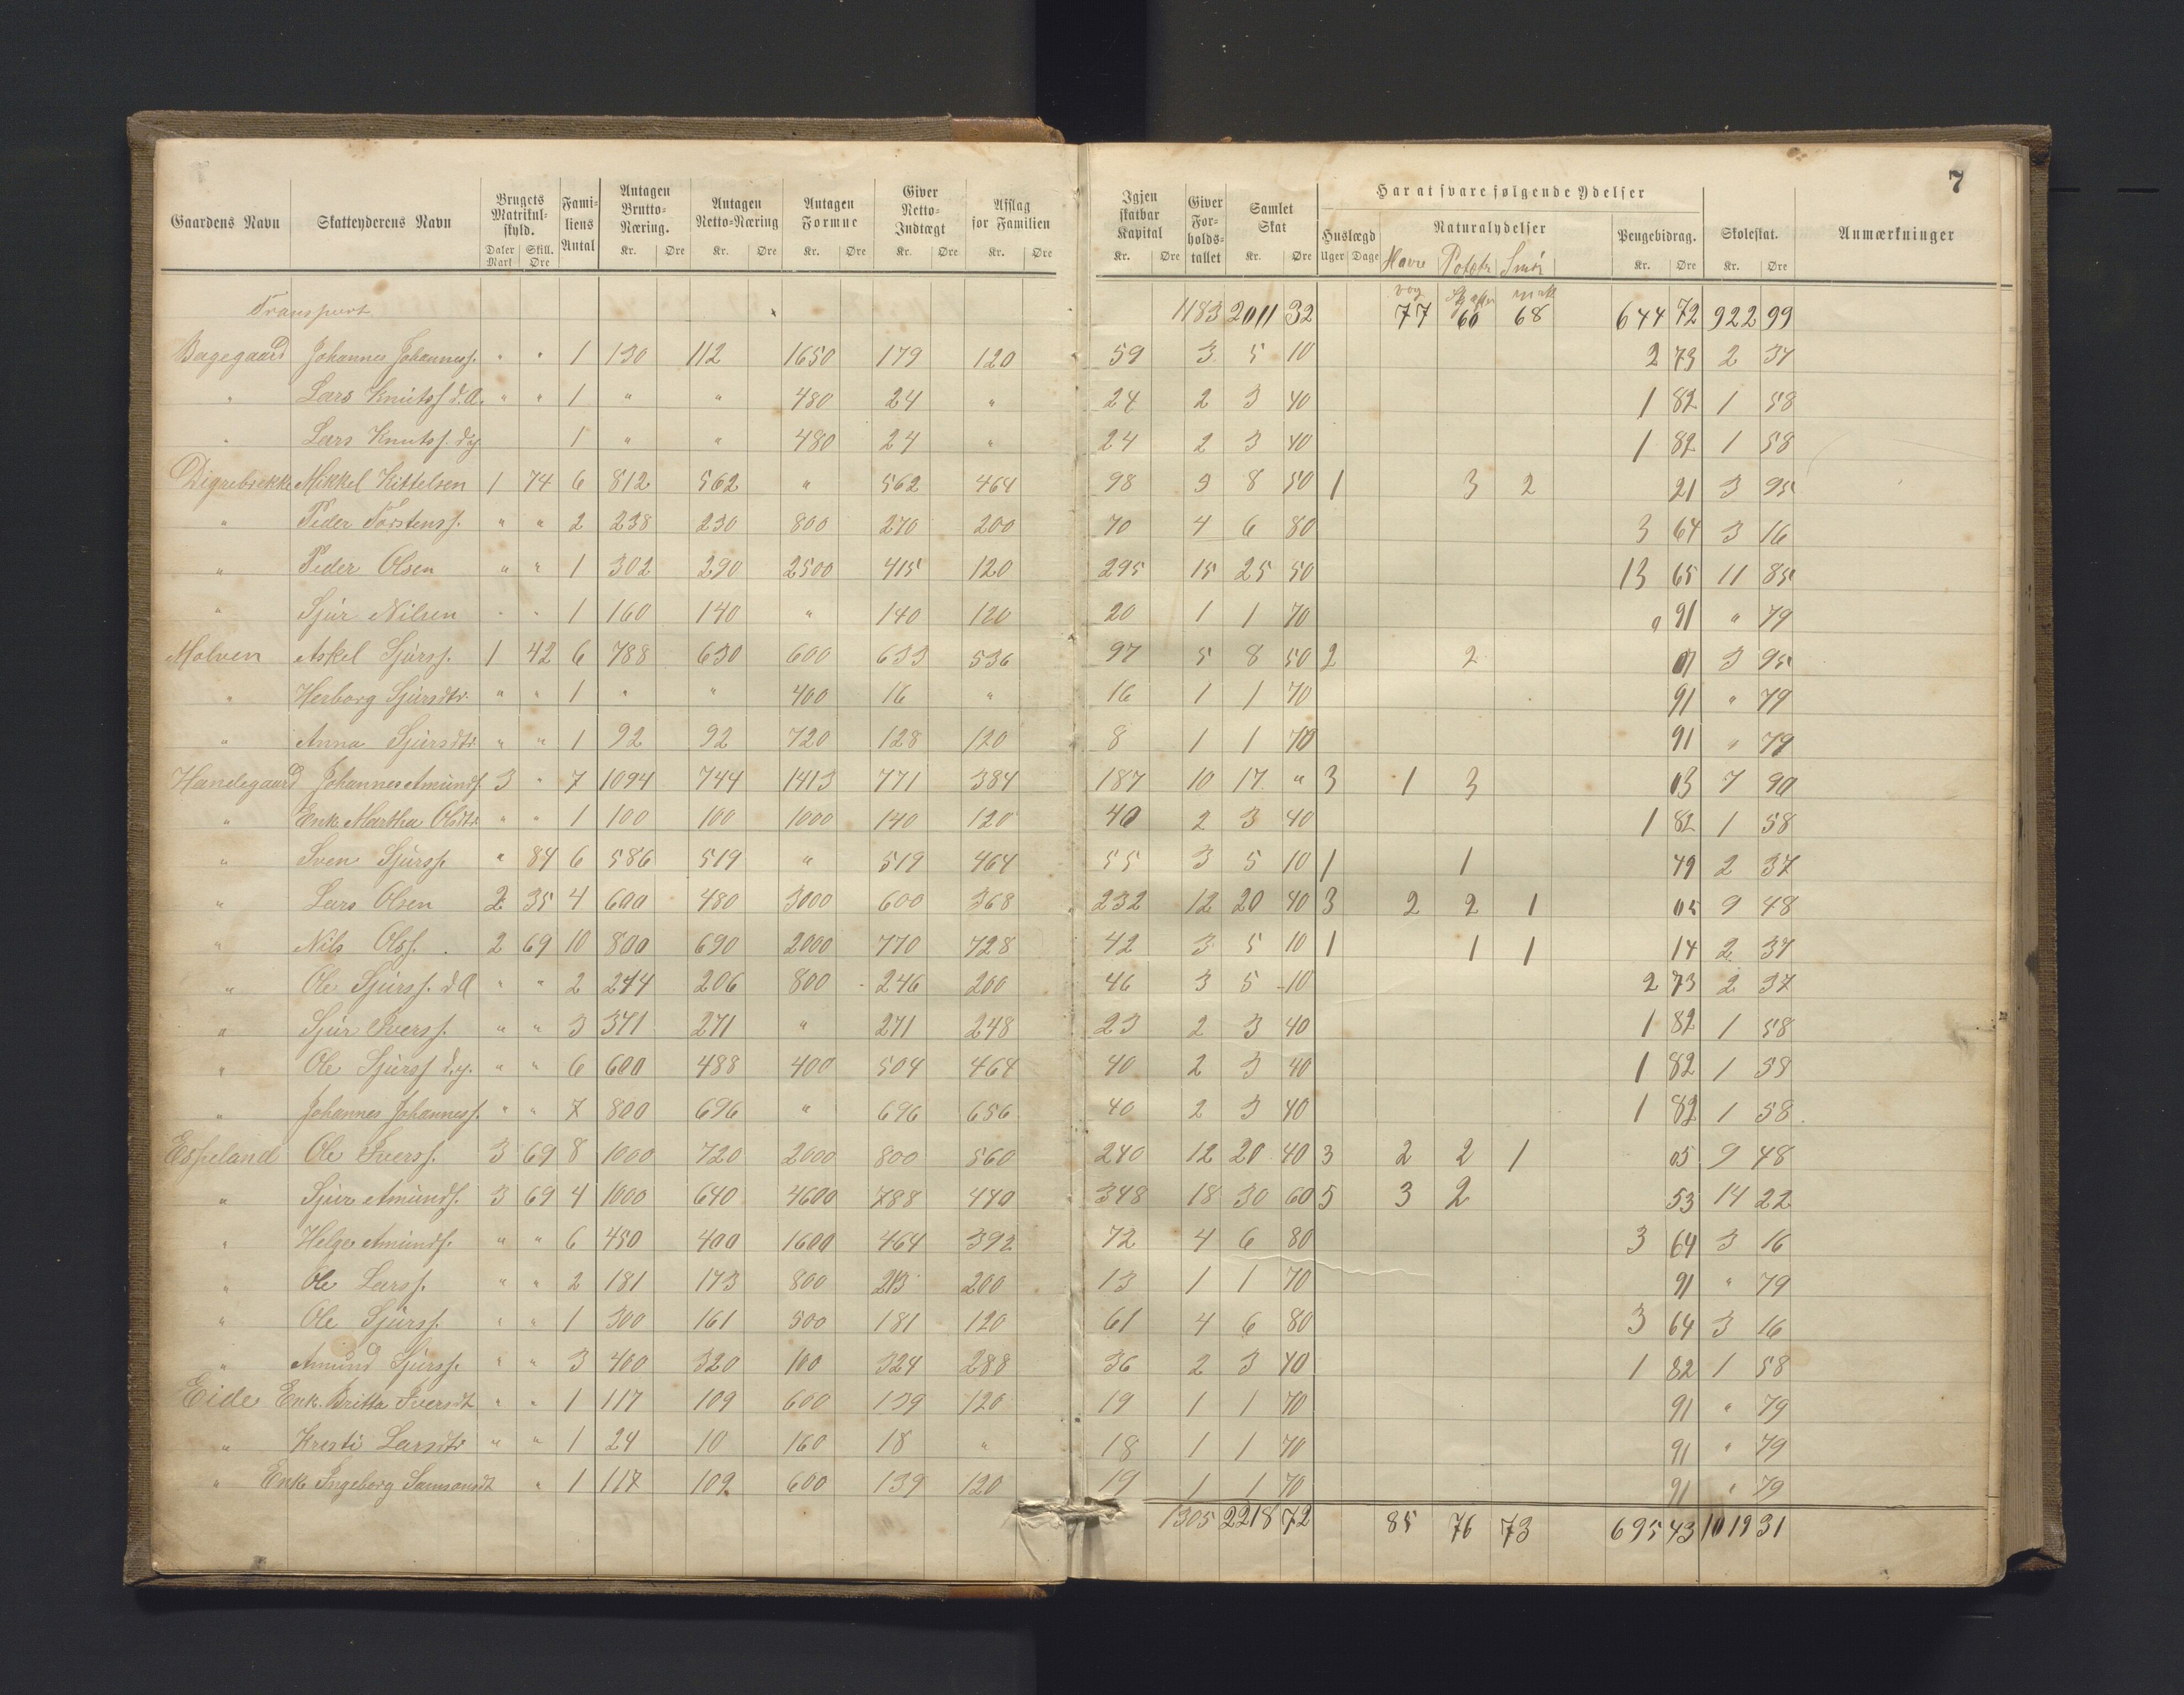 7
Gaardens Navn Skatteyderens Navn Brugets Matrikul-skyld. Daler Mark Skill. Øre Fami-liens Antal Antagen Brutto-Næring. Kr. Øre Antagen Netto-Næring Kr. Øre Antagen Formue Kr. Øre Giver Netto-Indtægt Kr. Øre Afslag for Familien Kr. Øre Igjen skatbar Kapital Kr. Øre Giver For-holds-tallet Samlet Skat Kr. Øre Har at svare følgende Ydelser Huslægd Uger Dage Naturalydelser Havre Poteter Smør Pengebidrag. Kr. Øre Skoleskat. Kr. Øre Anmærkninger
Transport 1183 2011 32 vog 77 60 68 644 72 922 99
Bagegaard Johannes Johanness. " " 1 130 112 1650 179 120 59 3 5 10 2 73 2 37
" Lars Knutss. d.Æ. " " 1 " " 480 24 " 24 2 3 40 1 82 1 58
" Lars Knutss. d.y. 1 " " 480 24 " 24 2 3 40 1 82 1 58
Digrebrekke Mikkel Kittelsen 1 74 6 812 562 " 562 464 98 5 8 50 1 3 2 21 3 95
" Peder Torstenss. " " 2 238 230 800 270 200 70 4 6 80 3 64 3 16
" Peder Olsen " " 1 302 290 2500 415 120 295 15 25 50 13 65 11 85
" Sjur Nilsen " " 1 160 140 " 140 120 20 1 1 70 " 91 " 79
Molven Askel Sjurss. 1 42 6 788 630 600 633 536 97 5 8 50 2 2 07 3 95
" Herborg Sjursdtr. " " 1 " " 400 16 " 16 1 1 70 91 " 79
" Anna Sjursdtr " " 1 92 92 720 128 120 8 1 1 70 91 " 79
Handegaard Johannes Amunds. 3 " 7 1094 744 1413 771 384 187 10 17 " 3 1 3 03 7 90
" Enk. Martha Olsdtr " " 1 100 100 1000 140 120 40 2 3 40 1 82 1 58
" Sven Sjurss. " 84 6 586 519 " 519 464 55 3 5 10 1 1 79 2 37
" Lars Olsen 2 35 4 600 480 3000 600 368 232 12 20 40 3 2 2 1 05 9 48
" Nils Olss. 2 69 10 800 690 2000 770 728 42 3 5 10 1 1 1 14 2 37
" Ole Sjurss. d.Æ " " 2 244 206 800 246 200 46 3 5 10 2 73 2 37
" Sjur Iverss. " " 3 371 271 " 271 248 23 2 3 40 1 82 1 58
" Ole Sjurss. d.y. " " 6 600 488 400 504 464 40 2 3 40 1 82 1 58
" Johannes Johanness. " " 7 800 696 " 696 656 40 2 3 40 1 82 1 58
Espeland Ole Iverss. 3 69 8 1000 720 2000 800 560 240 12 20 40 3 2 2 1 05 9 48
" Sjur Amunds. 3 69 4 1000 640 4600 788 440 348 18 30 60 5 3 2 53 14 22
" Helge Amunds. " " 6 450 400 1600 464 392 72 4 6 80 3 64 3 16
" Ole Larss. " " 2 181 173 800 213 200 13 1 1 70 91 " 79
" Ole Sjurss. " " 1 300 161 500 181 120 61 4 6 80 3 64 3 16
" Amund Sjurss. " " 3 400 320 100 324 288 36 2 3 40 1 82 1 58
Eide Enk. Britta Iversdt " " 1 117 109 600 139 120 19 1 1 70 91 " 79
" Kresti Larsdtr " " 1 24 10 160 18 " 18 1 1 70 91 " 79
" Enk. Ingeborg Samsonsdt " 1 117 109 600 139 120 19 1 1 70 91 " 79
1305 2218 72 85 76 73 695 43 1019 31